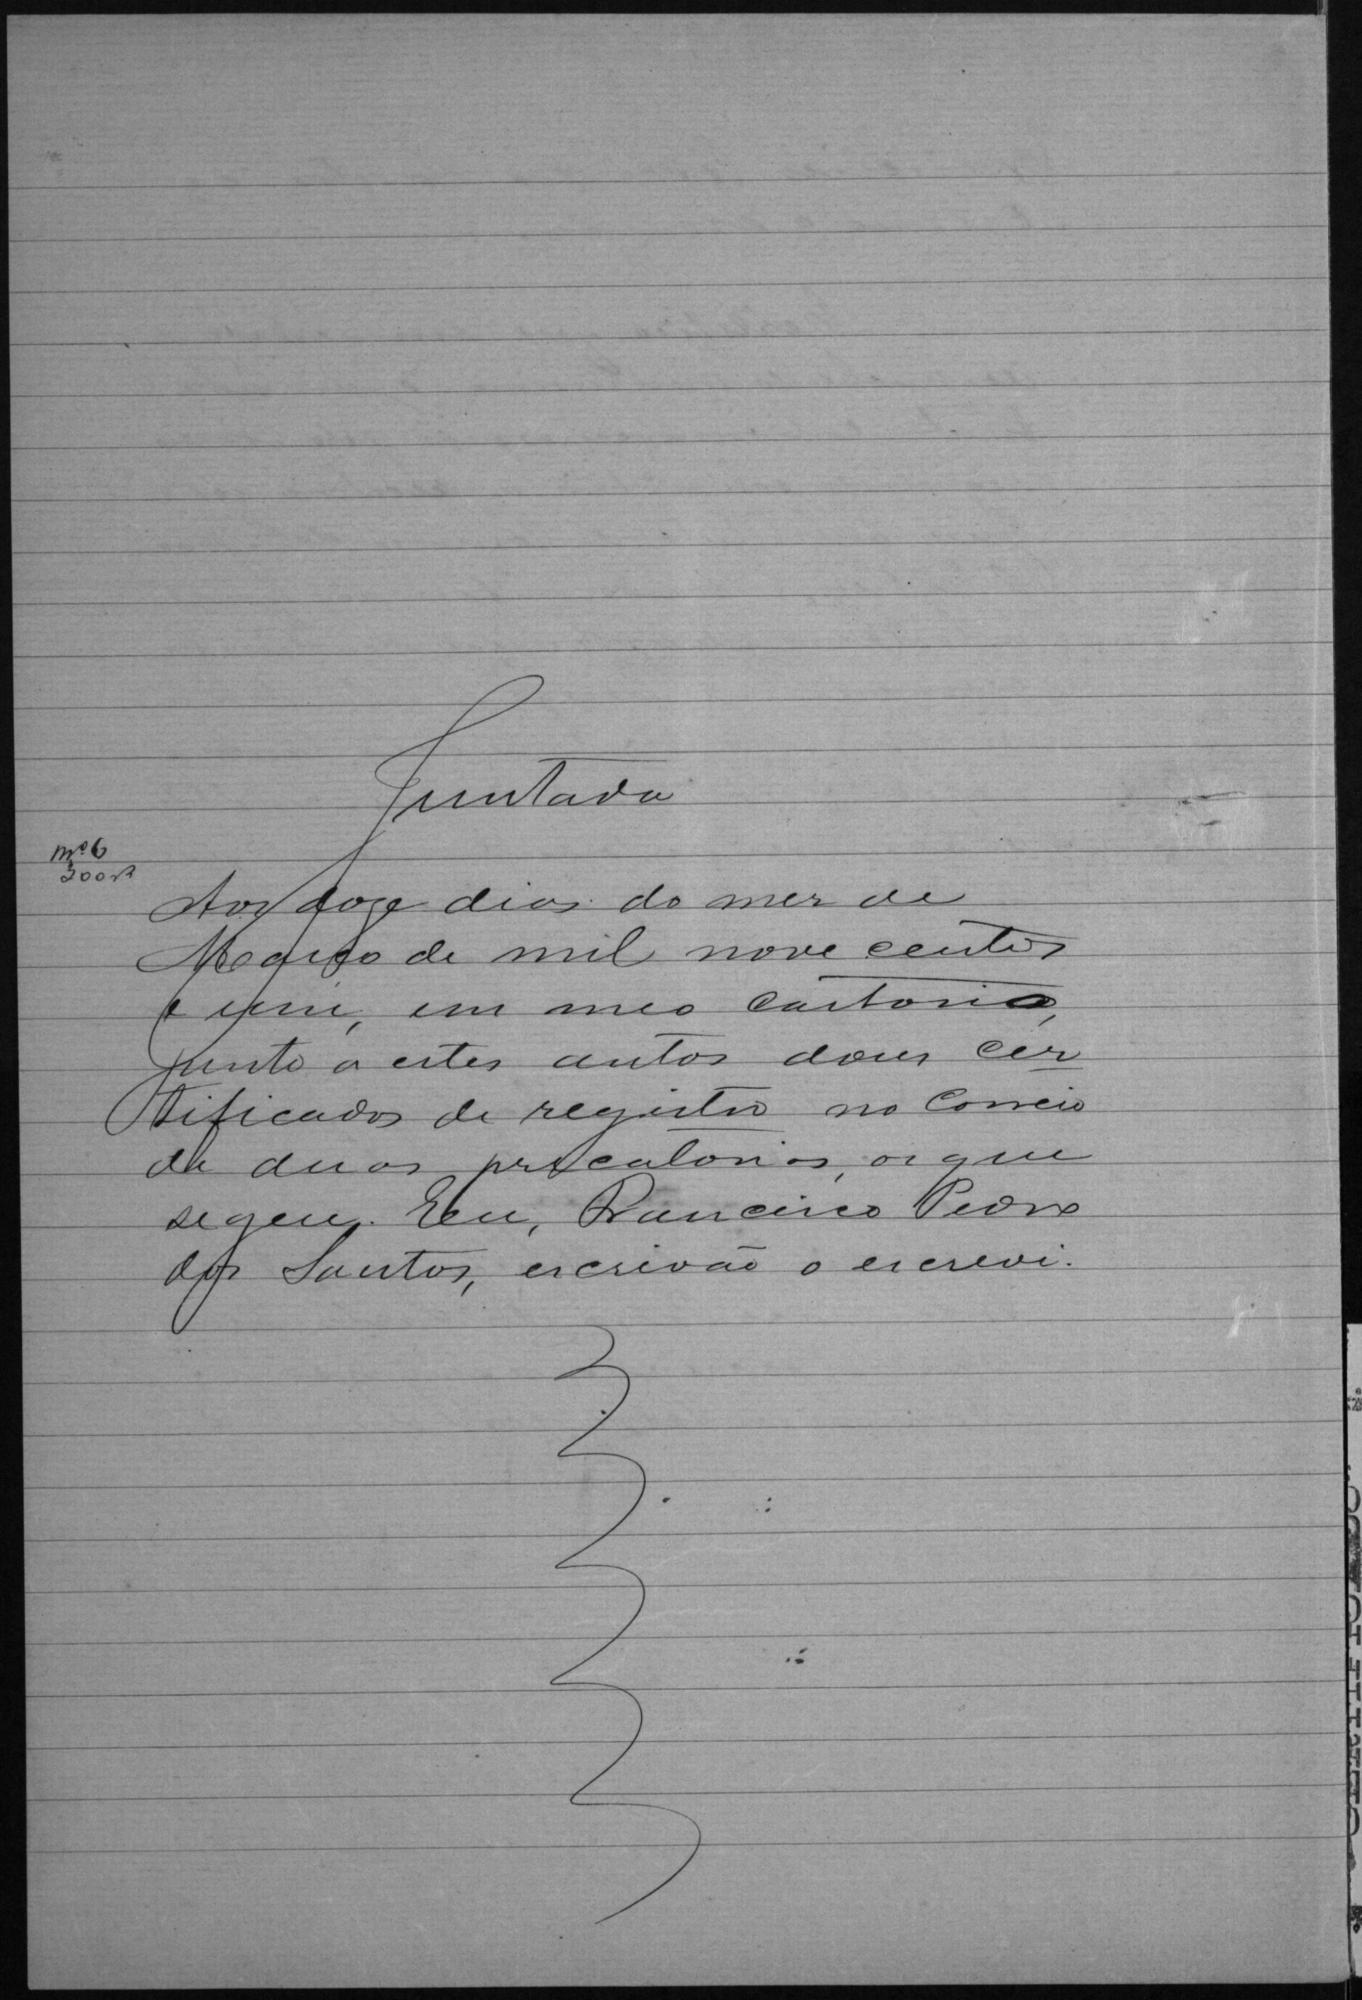 Juntada
nº 6
300 rs
Aos doze dias do mez de
Março de mil nove centos
e um, em meo cartorio,
junto a estes autos dous cer
tificados de registro no Correio
de duas precatorias, o que
segue. Eu, Francisco Pedro
dos Santos, escrivão o escrevi.